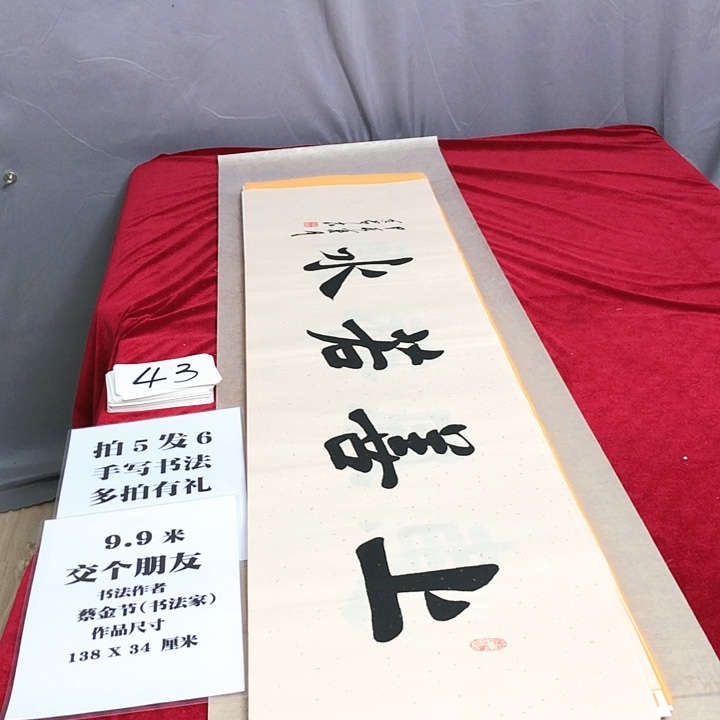 上善若水
43
拍5发6
手写书法
多拍有礼
9.9 米
交个朋友
书法作者
蔡金节(书法家)
作品尺寸
138 X 34 厘米